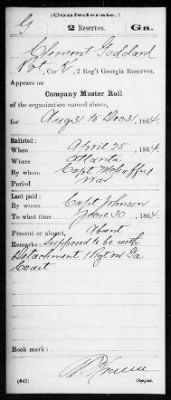 (Confederate.)
G 2 Reserves. Ga.
Clemont Goddard
Pvt, Co. K, 2 Reg't Georgia Reserves.
Appears on
Company Muster Roll
of the organization named above,
for Aug 31 to Dec 31, 1864.
Enlisted:
When April 25, 1864.
Where Atlanta
By whom Capt
Period War
Last paid:
By whom Capt Johnson
To what time June 30, 1864.
Present or absent, Absent
Remarks: Supposed to be with
Detachment Ga
Book mark:
(642) Copyist.